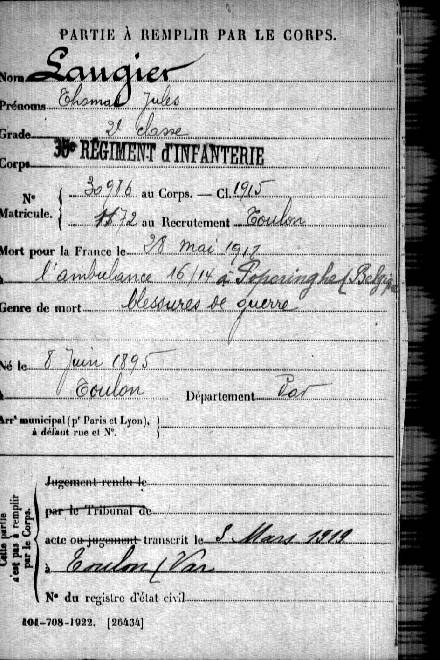 PARTIE À REMPLIR PAR LE CORPS.
Nom Laugier
Prénoms Thomas Jules
Grade 2e classe
Corps RÉGIMENT d'INFANTERIE
N° Matricule. 30986 au Corps. — Cl. 1915
1572 au Recrutement Toulon
Mort pour la France le 28 mai 1917
à l'ambulance 16/14 à Poperinghe (Belgique
Genre de mort blessures de guerre
Né le 8 Juin 1895
à Toulon Département Var
Arrt municipal (pr Paris et Lyon),
à défaut rue et N°.
Cette partie n'est pas à remplir par le Corps.
Jugement rendu le
par le Tribunal de
acte ou jugement transcrit le 3 Mars 1919
à Toulon (Var
N° du registre d'état civil
101-708-1922. [26434]